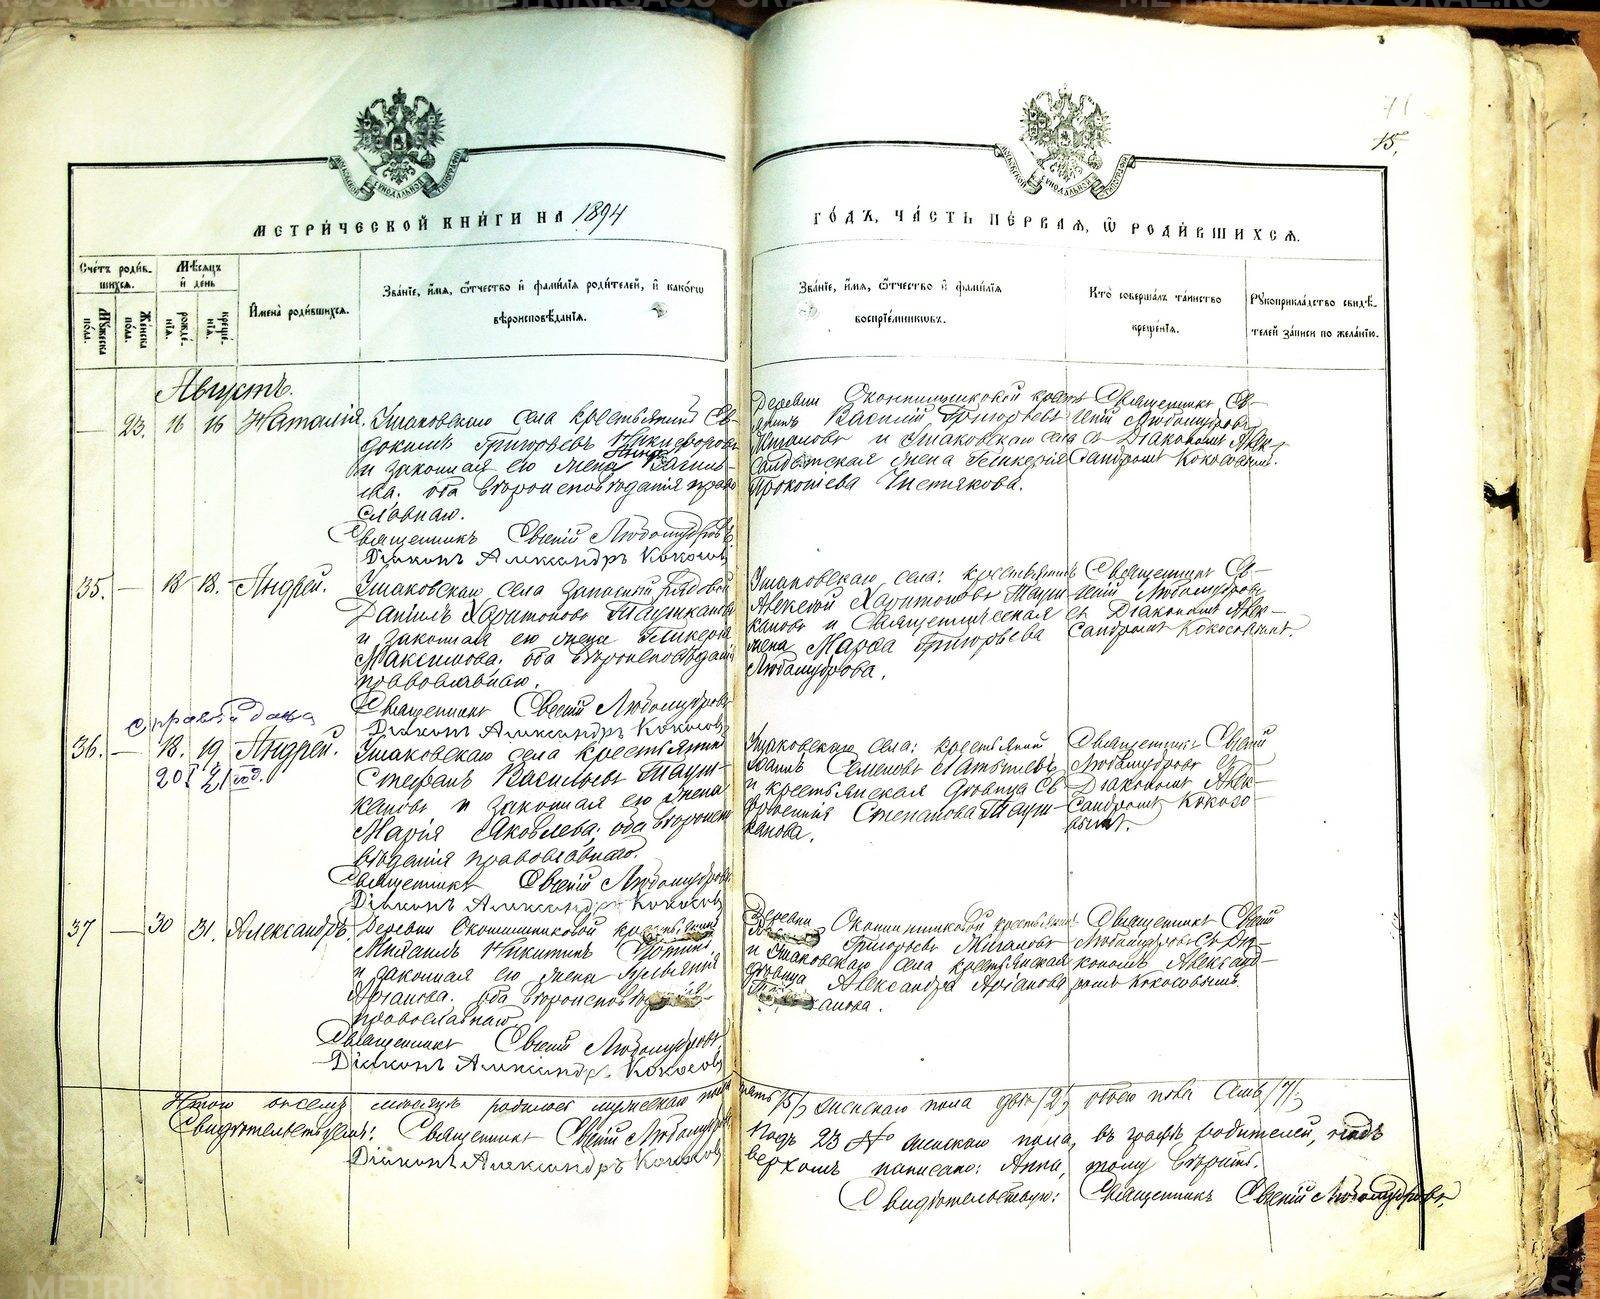 METRIKI.GASO-URAL.RU
71
15.
МЕТРИ́ЧЕСКОЙ КНИ́ГИ НА 1894
ГО́ДЪ, ЧА́СТЬ ПЕ́РВАЯ, Ѽ РОДИ́ВШИХСѦ.
Сче́тъ роди́вшихсѧ.
Му́жеска по́ла.
Же́нска по́ла.
Мѣ́сѧцъ и҆ де́нь
рожде́нїѧ.
креще́нїѧ.
И҆мена̀ роди́вшихсѧ.
Зва́нїе, и҆́мѧ, ѻ҆́тчество и҆ фамі́лїѧ роди́телей, и҆ како́гѡ
вѣроисповѣ́данїѧ.
Зва́нїе, и҆́мѧ, ѻ҆́тчество и҆ фамі́лїѧ
воспрїе́мникѡвъ.
Кто̀ соверша́лъ та́инство
креще́нїѧ.
Рꙋкоприкла́дство свидѣ́-
телей за́писи по жела́нїю.
Августъ.
— 23. 16 16 Наталія.
Ушаковскаго села крестьянинъ Ев-
докимъ Григорьевъ Никифоровъ
и законная его жена Анна Василь-
ева. оба вѣроисповѣданія право
славнаго.
Священникъ Евгеній Любомудровъ
Діаконъ Александръ Кокосовъ
Деревни Оконишниковой крестья
нинъ Василій Григорьевъ
Жигаловъ и Ушаковскаго села
солдатская жена Гликерія
Прокопьева Чистякова.
Священникъ Ев-
геній Любомудровъ
съ Діакономъ Алек-
сандромъ Кокосовымъ.
35. — 18 18. Андрей.
Ушаковскаго села запасный рядовой
Даніилъ Харитоновъ Таушкановъ
и законная его жена Гликерія
Максимова. оба вѣроисповѣданія
православнаго.
Священникъ Евгеній Любомудровъ
Діаконъ Александръ Кокосовъ
Ушаковскаго села: крестьянинъ
Алексѣй Харитоновъ Тауш-
кановъ и Священническая
жена Марѳа Григорьева
Любомудрова.
Священникъ Ев-
геній Любомудровъ
съ Діакономъ Алек-
сандромъ Кокосовымъ.
Справка дана
20 I 21 год.
36. — 18. 19 Андрей.
Ушаковскаго села крестьянинъ
Стефанъ Васильевъ Тауш-
кановъ и законная его жена
Марія Яковлева. оба вѣроиспо
вѣданія православнаго.
Священникъ Евгеній Любомудровъ
Діаконъ Александръ Кокосовъ
Ушаковскаго села: крестьянинъ
Іоаннъ Семеновъ Латышевъ
и крестьянская дѣвица Ев
фросинія Степанова Тауш-
канова.
Священникъ Евгеній
Любомудровъ съ
Діакономъ Алек-
сандромъ Кокосо-
вымъ.
37 — 30 31. Александръ.
Деревни Оконишниковой крестьянинъ
Михаилъ Никитинъ
и законная его жена
оба вѣроисповѣданія
православнаго.
Священникъ Евгеній Любомудровъ
Діаконъ Александръ Кокосовъ
Деревни Оконишниковой крестьянинъ
Григорьевъ Жигаловъ
и Ушаковскаго села крестьянская
дѣвица Александра
канова.
Священникъ Евгеній
Любомудровъ съ Діа-
кономъ Александ-
ромъ Кокосовымъ.
Итого въ семъ мѣсяцѣ родилось мужескаго пола пять /5/, женскаго пола двѣ /2/, обоего пола семь /7/.
Свидѣтельствуемъ: Священникъ Евгеній Любомудровъ
Діаконъ Александръ Кокосовъ
Подъ 23 № женскаго пола, въ графѣ родителей, надъ
верхомъ написано: Анна, тому вѣрить.
Свидѣтельствую: Священникъ Евгеній Любомудровъ.
METRIKI.GASO-URAL.RU